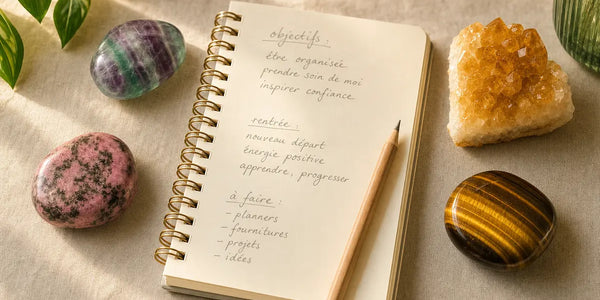 objectifs :
être organisée
prendre soin de moi
inspirer confiance
rentrée :
nouveau départ
énergie positive
apprendre, progresser
à faire :
- planners
- fournitures
- projets
- idées